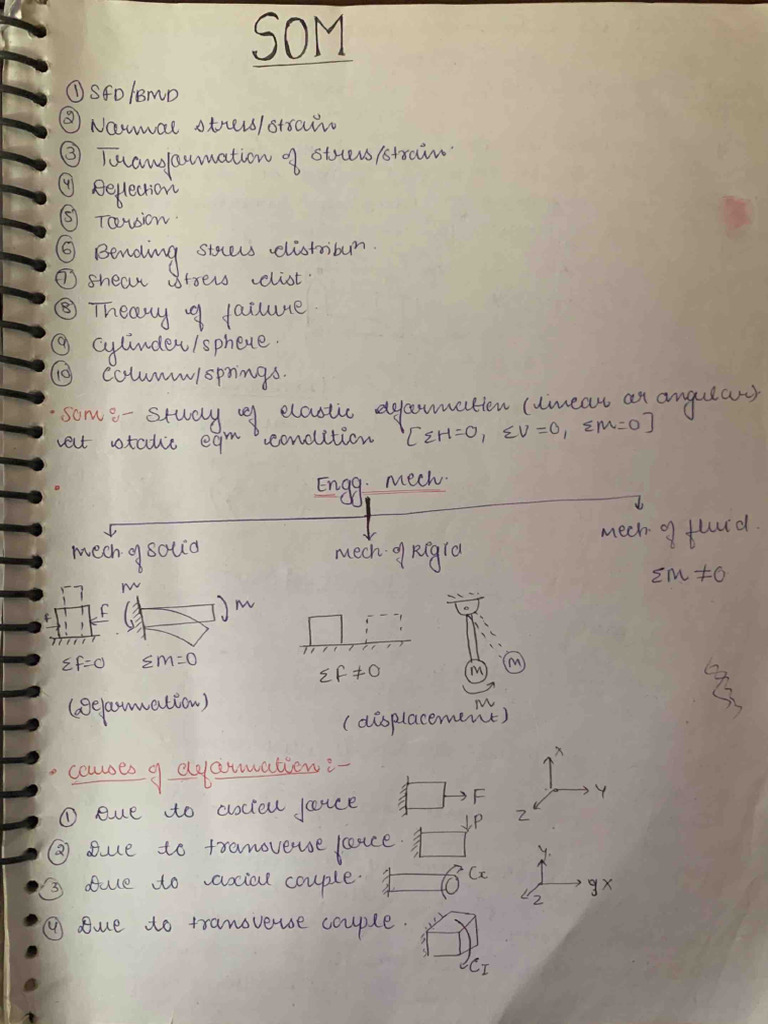 SOM
① SFD/BMD
② Normal stress/strain
③ Transformation of stress/strain.
④ Deflection
⑤ Torsion.
⑥ Bending stress distribuⁿ.
⑦ Shear stress dist.
⑧ Theory of failure.
⑨ Cylinder/sphere.
⑩ Column/springs.
• SOM:- Study of elastic deformation (linear or angular)
at static eqᵐ condition [ΣH=0, ΣV=0, ΣM=0]
• Engg. Mech.
Mech. of Solid
Mech. of Rigid
Mech. of fluid.
ΣM ≠ 0
M
M
f
f
Σf=0
ΣM=0
Σf ≠ 0
M
M
M
(Deformation)
(displacement)
• Causes of deformation:-
① Due to axial force
F
X
Y
Z
② Due to transverse force.
P
③ Due to axial couple.
Cx
Y
X
Z
④ Due to transverse couple.